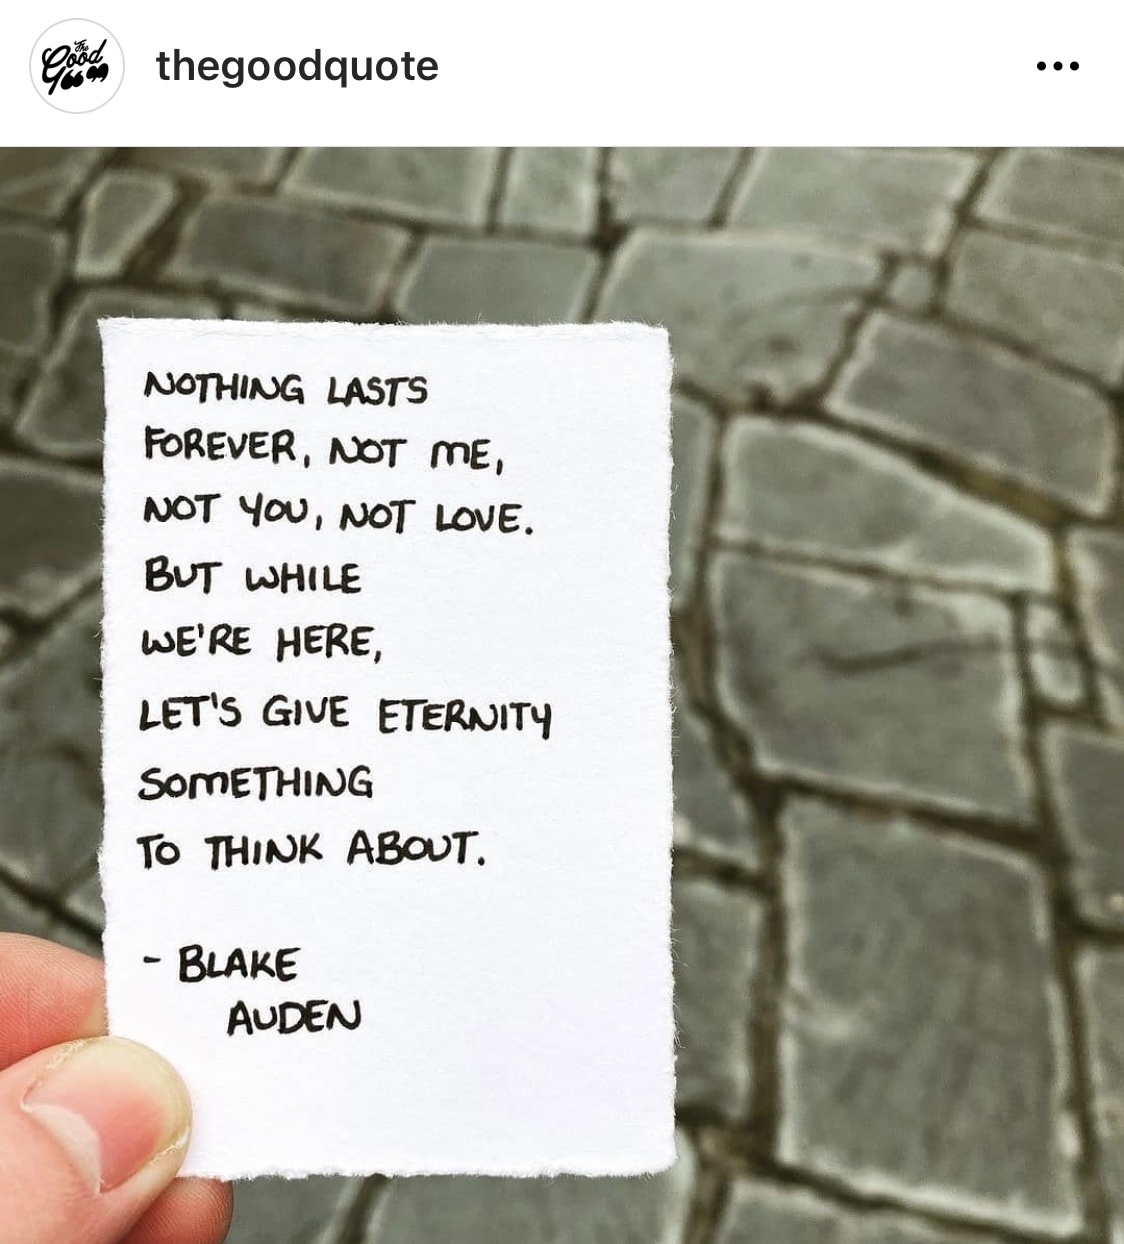 The Good Quote
thegoodquote
NOTHING LASTS
FOREVER, NOT ME,
NOT YOU, NOT LOVE.
BUT WHILE
WE'RE HERE,
LET'S GIVE ETERNITY
SOMETHING
TO THINK ABOUT.
- BLAKE
AUDEN